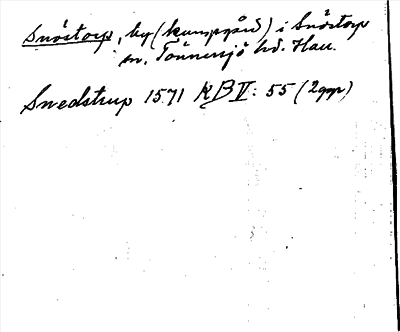 Snöstorp, by (kungsgård) i Snöstorp
sn. Tönnersjö hd. Hall.
Snedstrup 1571 KB V: 55 (2 ggr)